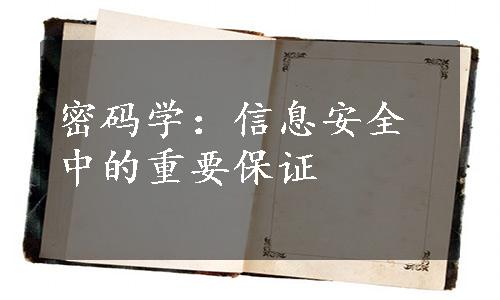 密码学：信息安全
中的重要保证